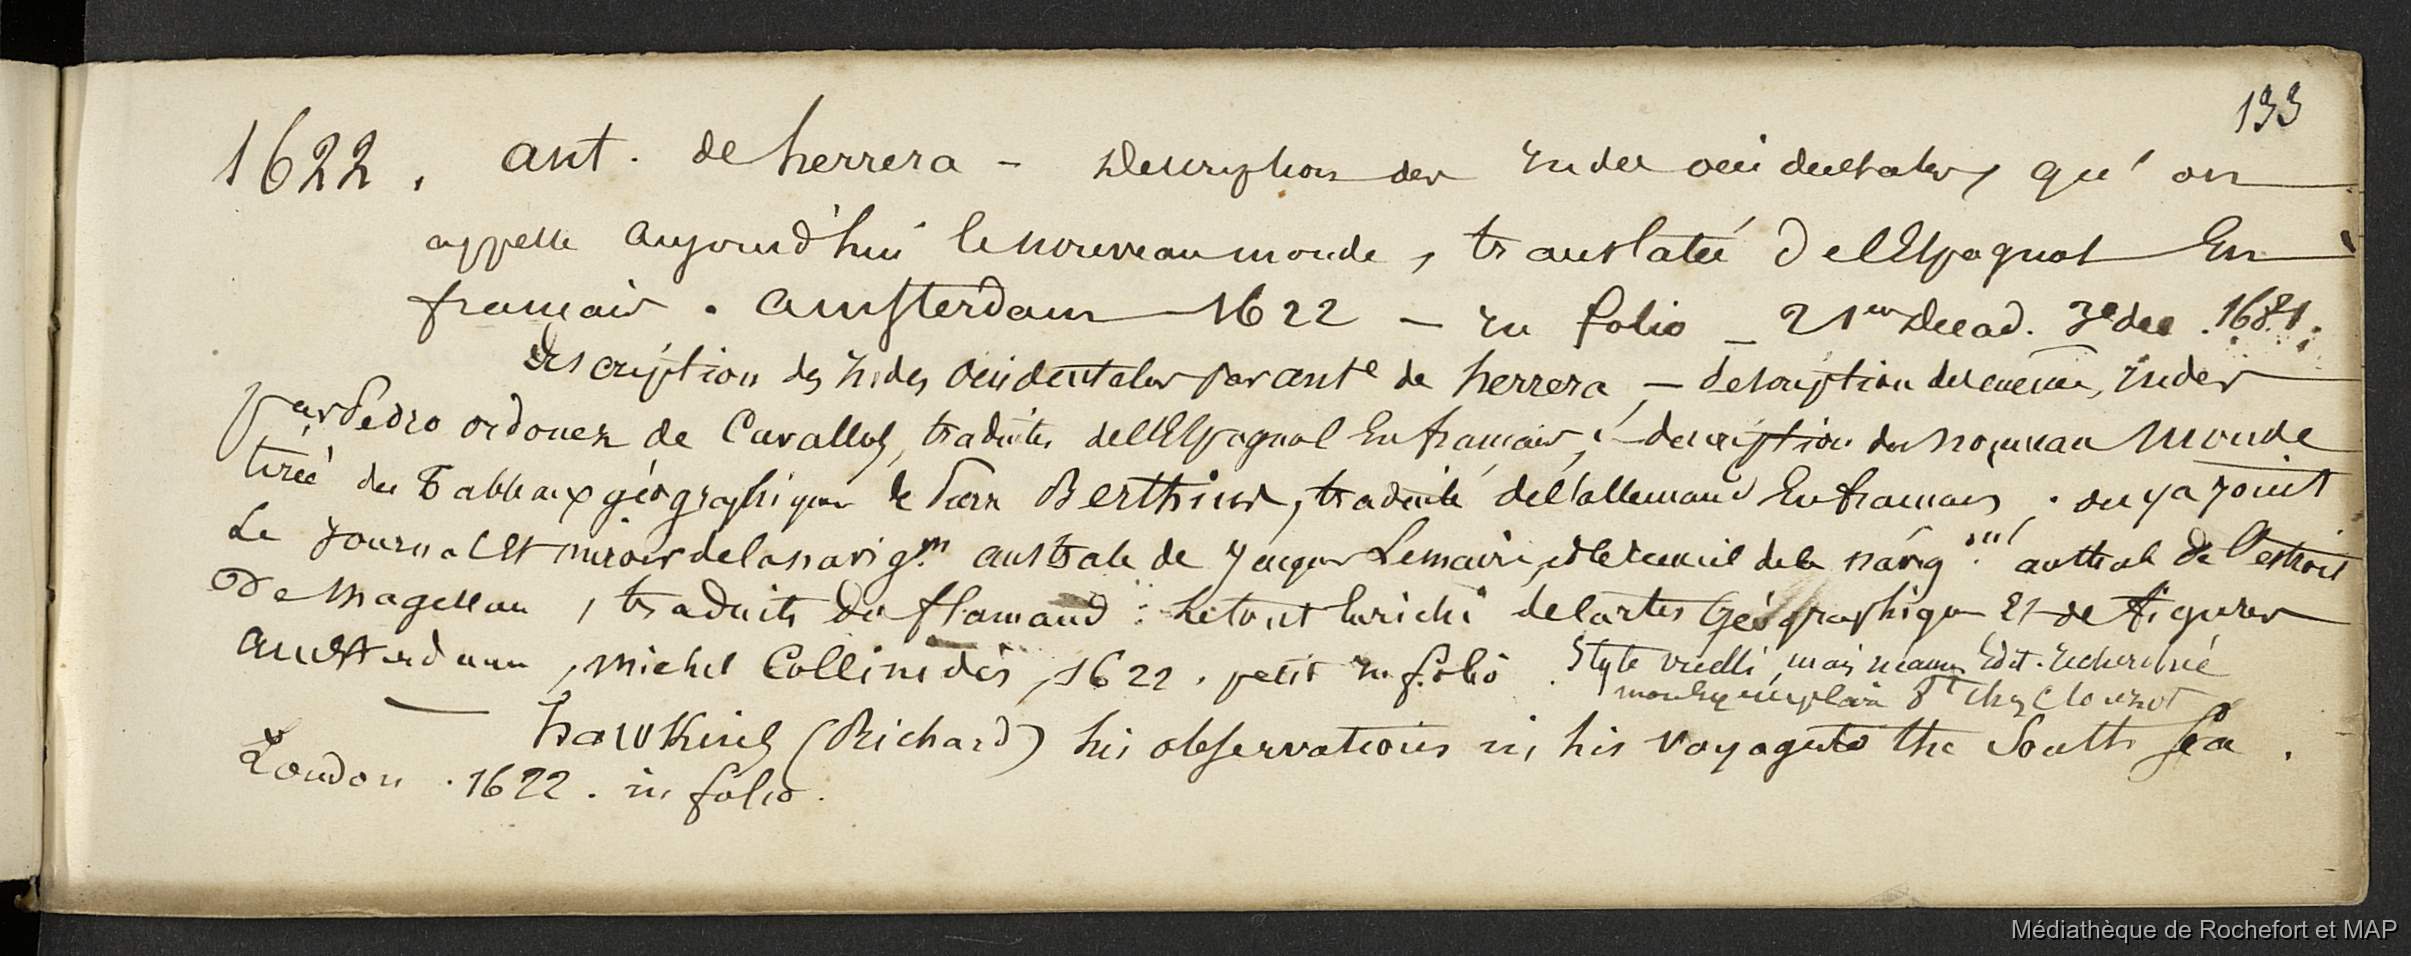 133
1622. ant. de herrera - Description des Indes occidentales, qu'on
appelle aujourd'hui le nouveau monde, translatée de l'Espagnol En
francais. amsterdam 1622 - in folio -
description des Indes Occidentales par ant.e de herrera - description des mêmes Indes
par Pedro ordonez de Cavallos, traduites de l'Espagnol En francais, description du nouveau Monde
tirée des Tableaux géographiques de Pierre Berthius, traduite de l'allemand En francais. on y a joint
Le Journal Et miroir de la navig.on australe de Jacques Lemaire, et le recueil de la navig.on australe de l'estroit
De Magellan, traduits du flamand: le tout Enrichi de Cartes Géographiques Et de figures
amsterdam, Michel Collin 1622. petit in folio. Style vieilli, mais Edit. recherchée
8 chez Clouzot
hawkins (Richard) his observations in his voyage to the South Sea.
London. 1622. in folio.
Médiathèque de Rochefort et MAP